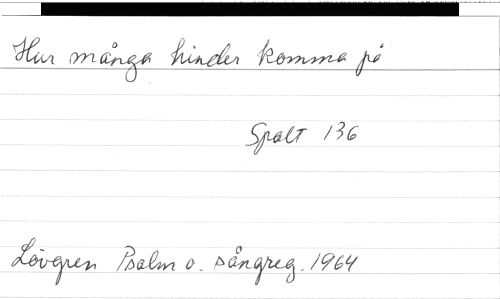 Hur många hinder komma på
Spalt 136
Lövgren Psalm o. sångreg. 1964